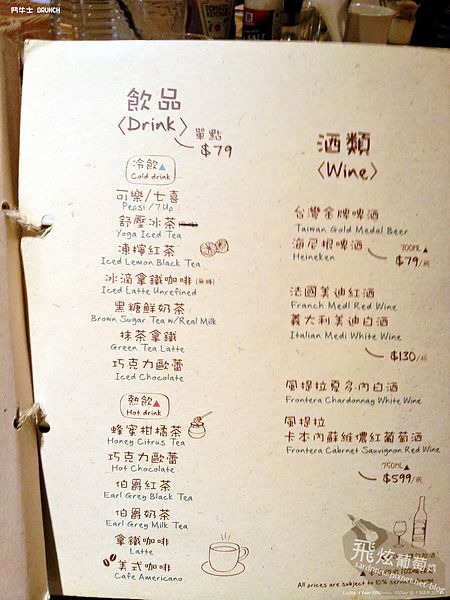 鬥牛士 BRUNCH
TOMATO
KETCHUP
SALT
飲品
〈Drink〉
單點
$79
冷飲▲
Cold drink
可樂/七喜
Pepsi / 7.Up
舒壓冰茶
Yoga Iced Tea
凍檸紅茶
Iced Lemon Black Tea
冰滴拿鐵咖啡(無糖)
Iced Latte Unrefined
黑糖鮮奶茶
Brown Sugar Tea w/Real Milk
抹茶拿鐵
Green Tea Latte
巧克力歐蕾
Iced Chocolate
熱飲▲
Hot drink
蜂蜜柑橘茶
Honey Citrus Tea
巧克力歐蕾
Hot Chocolate
伯爵紅茶
Earl Grey Black Tea
伯爵奶茶
Earl Grey Milk Tea
拿鐵咖啡
Latte
美式咖啡
Cafe Americano
酒類
〈Wine〉
台灣金牌啤酒
Taiwan Gold Medal Beer
海尼根啤酒
Heineken
700ML▲
$79/瓶
法國美迪紅酒
Franch Medi Red Wine
義大利美迪白酒
Italian Medi White Wine
$130/杯
風提拉夏多內白酒
Frontera Chardonnay White Wine
風提拉
卡本內蘇維儂紅葡萄酒
Frontera Cabrnet Sauvignon Red Wine
750ML▲
$599/瓶
飛炫葡萄
All prices are subject to 10% service charge